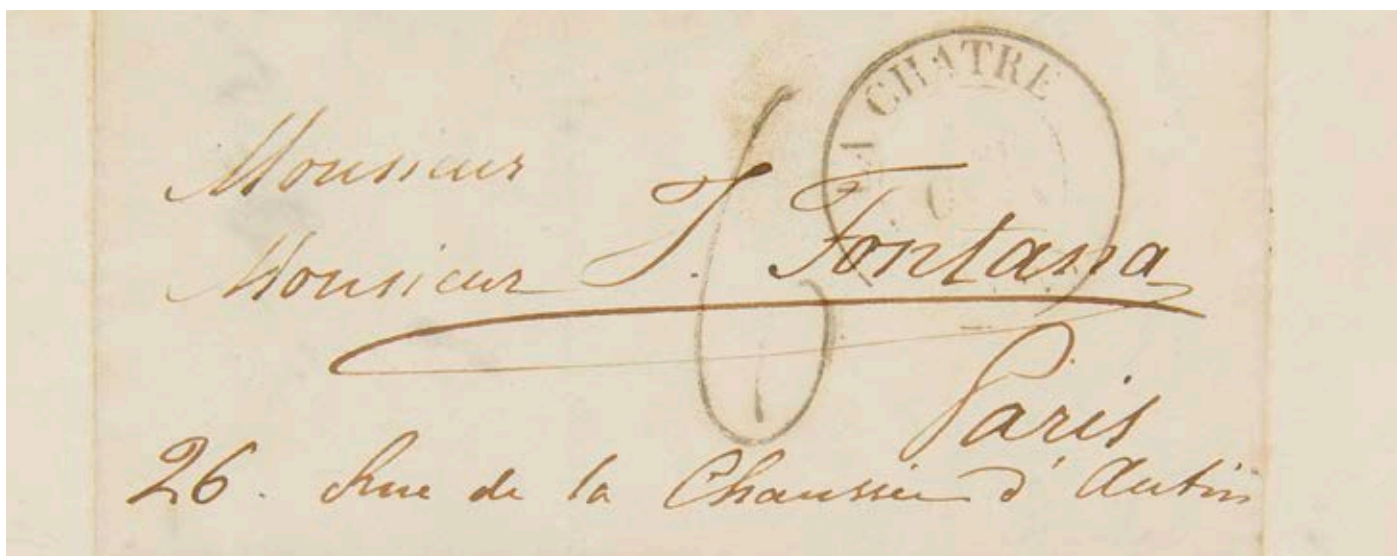 LA CHATRE
Monsieur
Monsieur J. Fontana
Paris
26. Rue de la Chaussée d'Antin